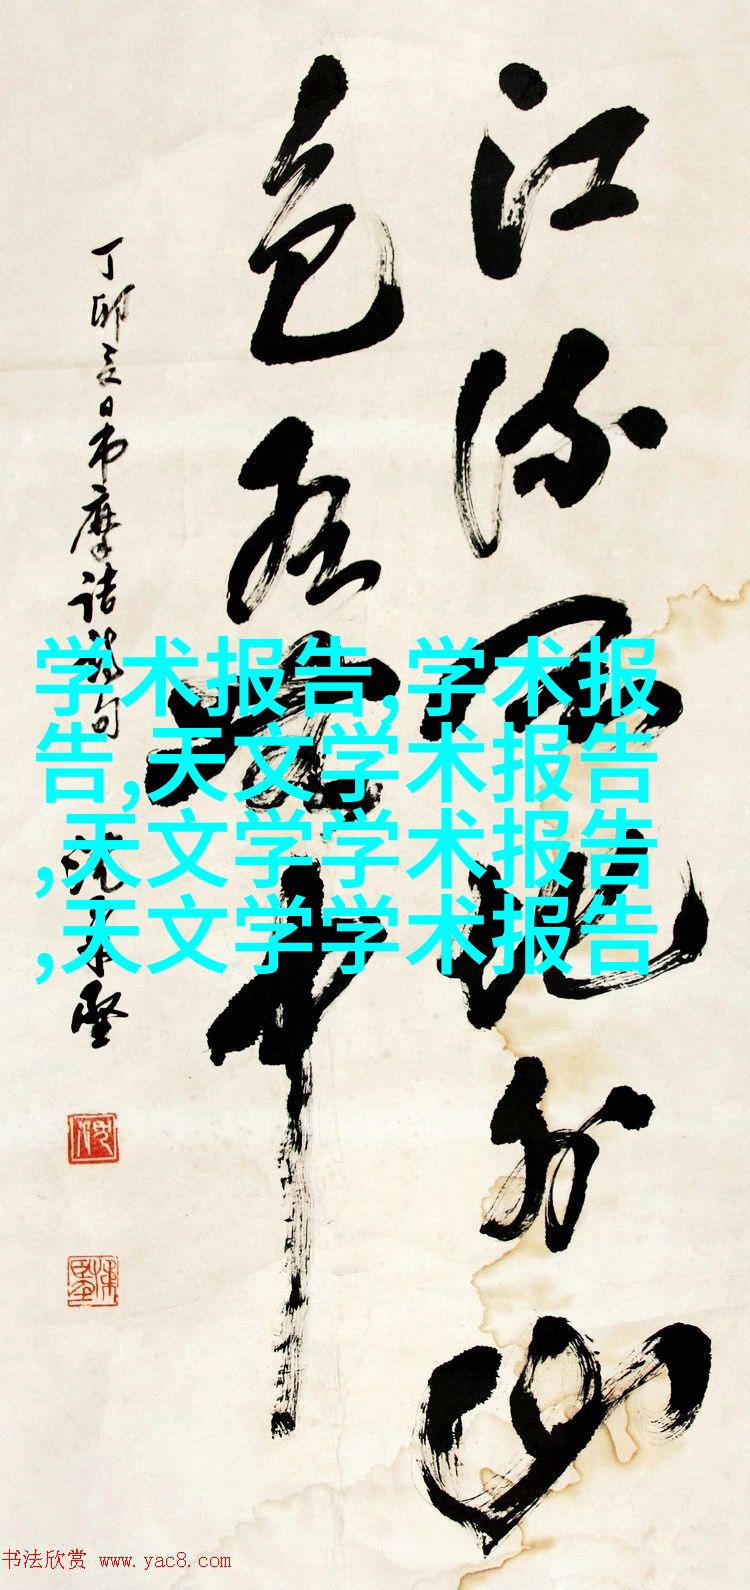 江流天地外山
色有無中
丁卯夏日書摩詰詩句
学术报告,学术报
告,天文学术报告
,天文学学术报告
,天文学学术报告
书法欣赏 www.yac8.com